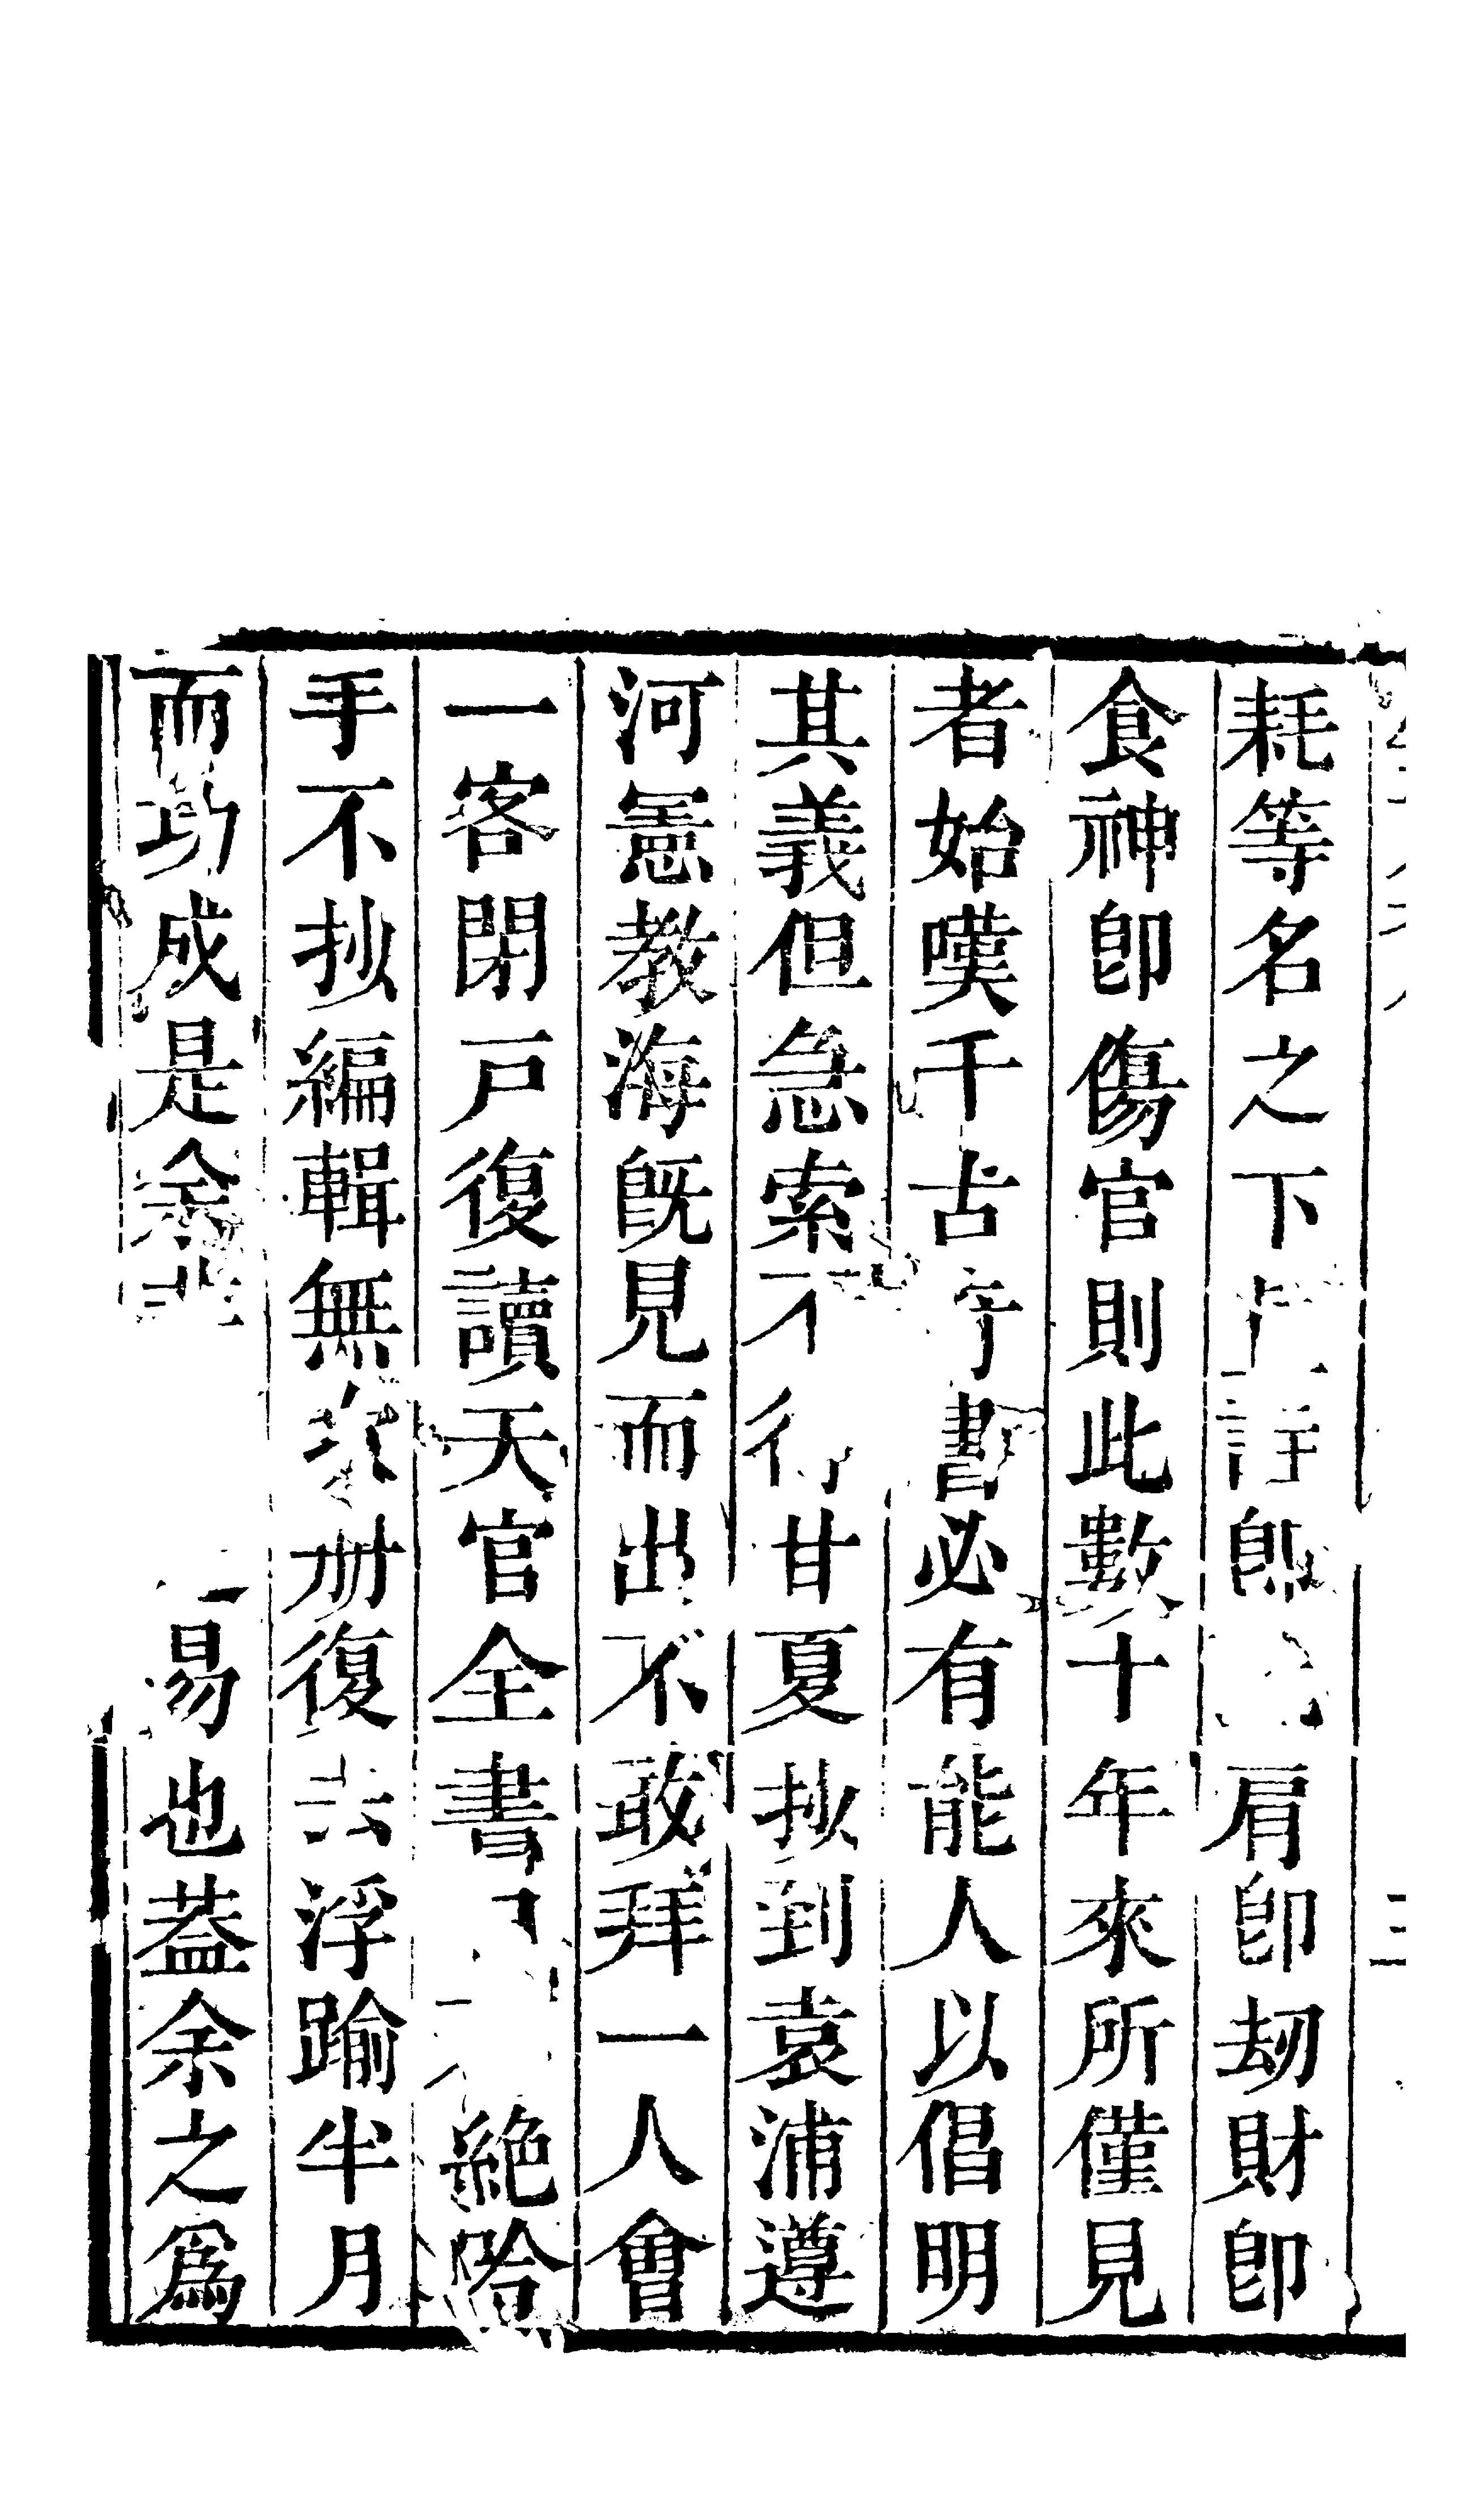 耗等名之下註卽肩卽刼財卽
食神卽傷官則此數十年來所僅見
者始嘆千古字書必有能人以倡明
其義但急索不行甘夏抄到袁浦遵
河憲教海旣見而出不敢拜一人會
一客閉戸復讀天官全書絕唅
手不抄編輯無册復去浮踰半月
而功成是余易也葢余之爲
三